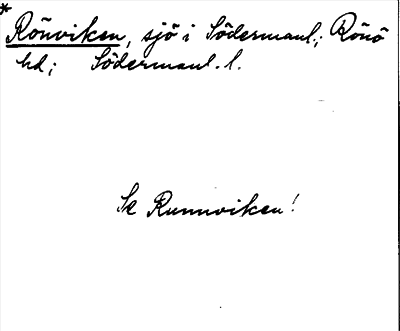 * Rönviken, sjö i Södermanl.; Rönö
hd; Södermanl. l.
Se Runnviken!